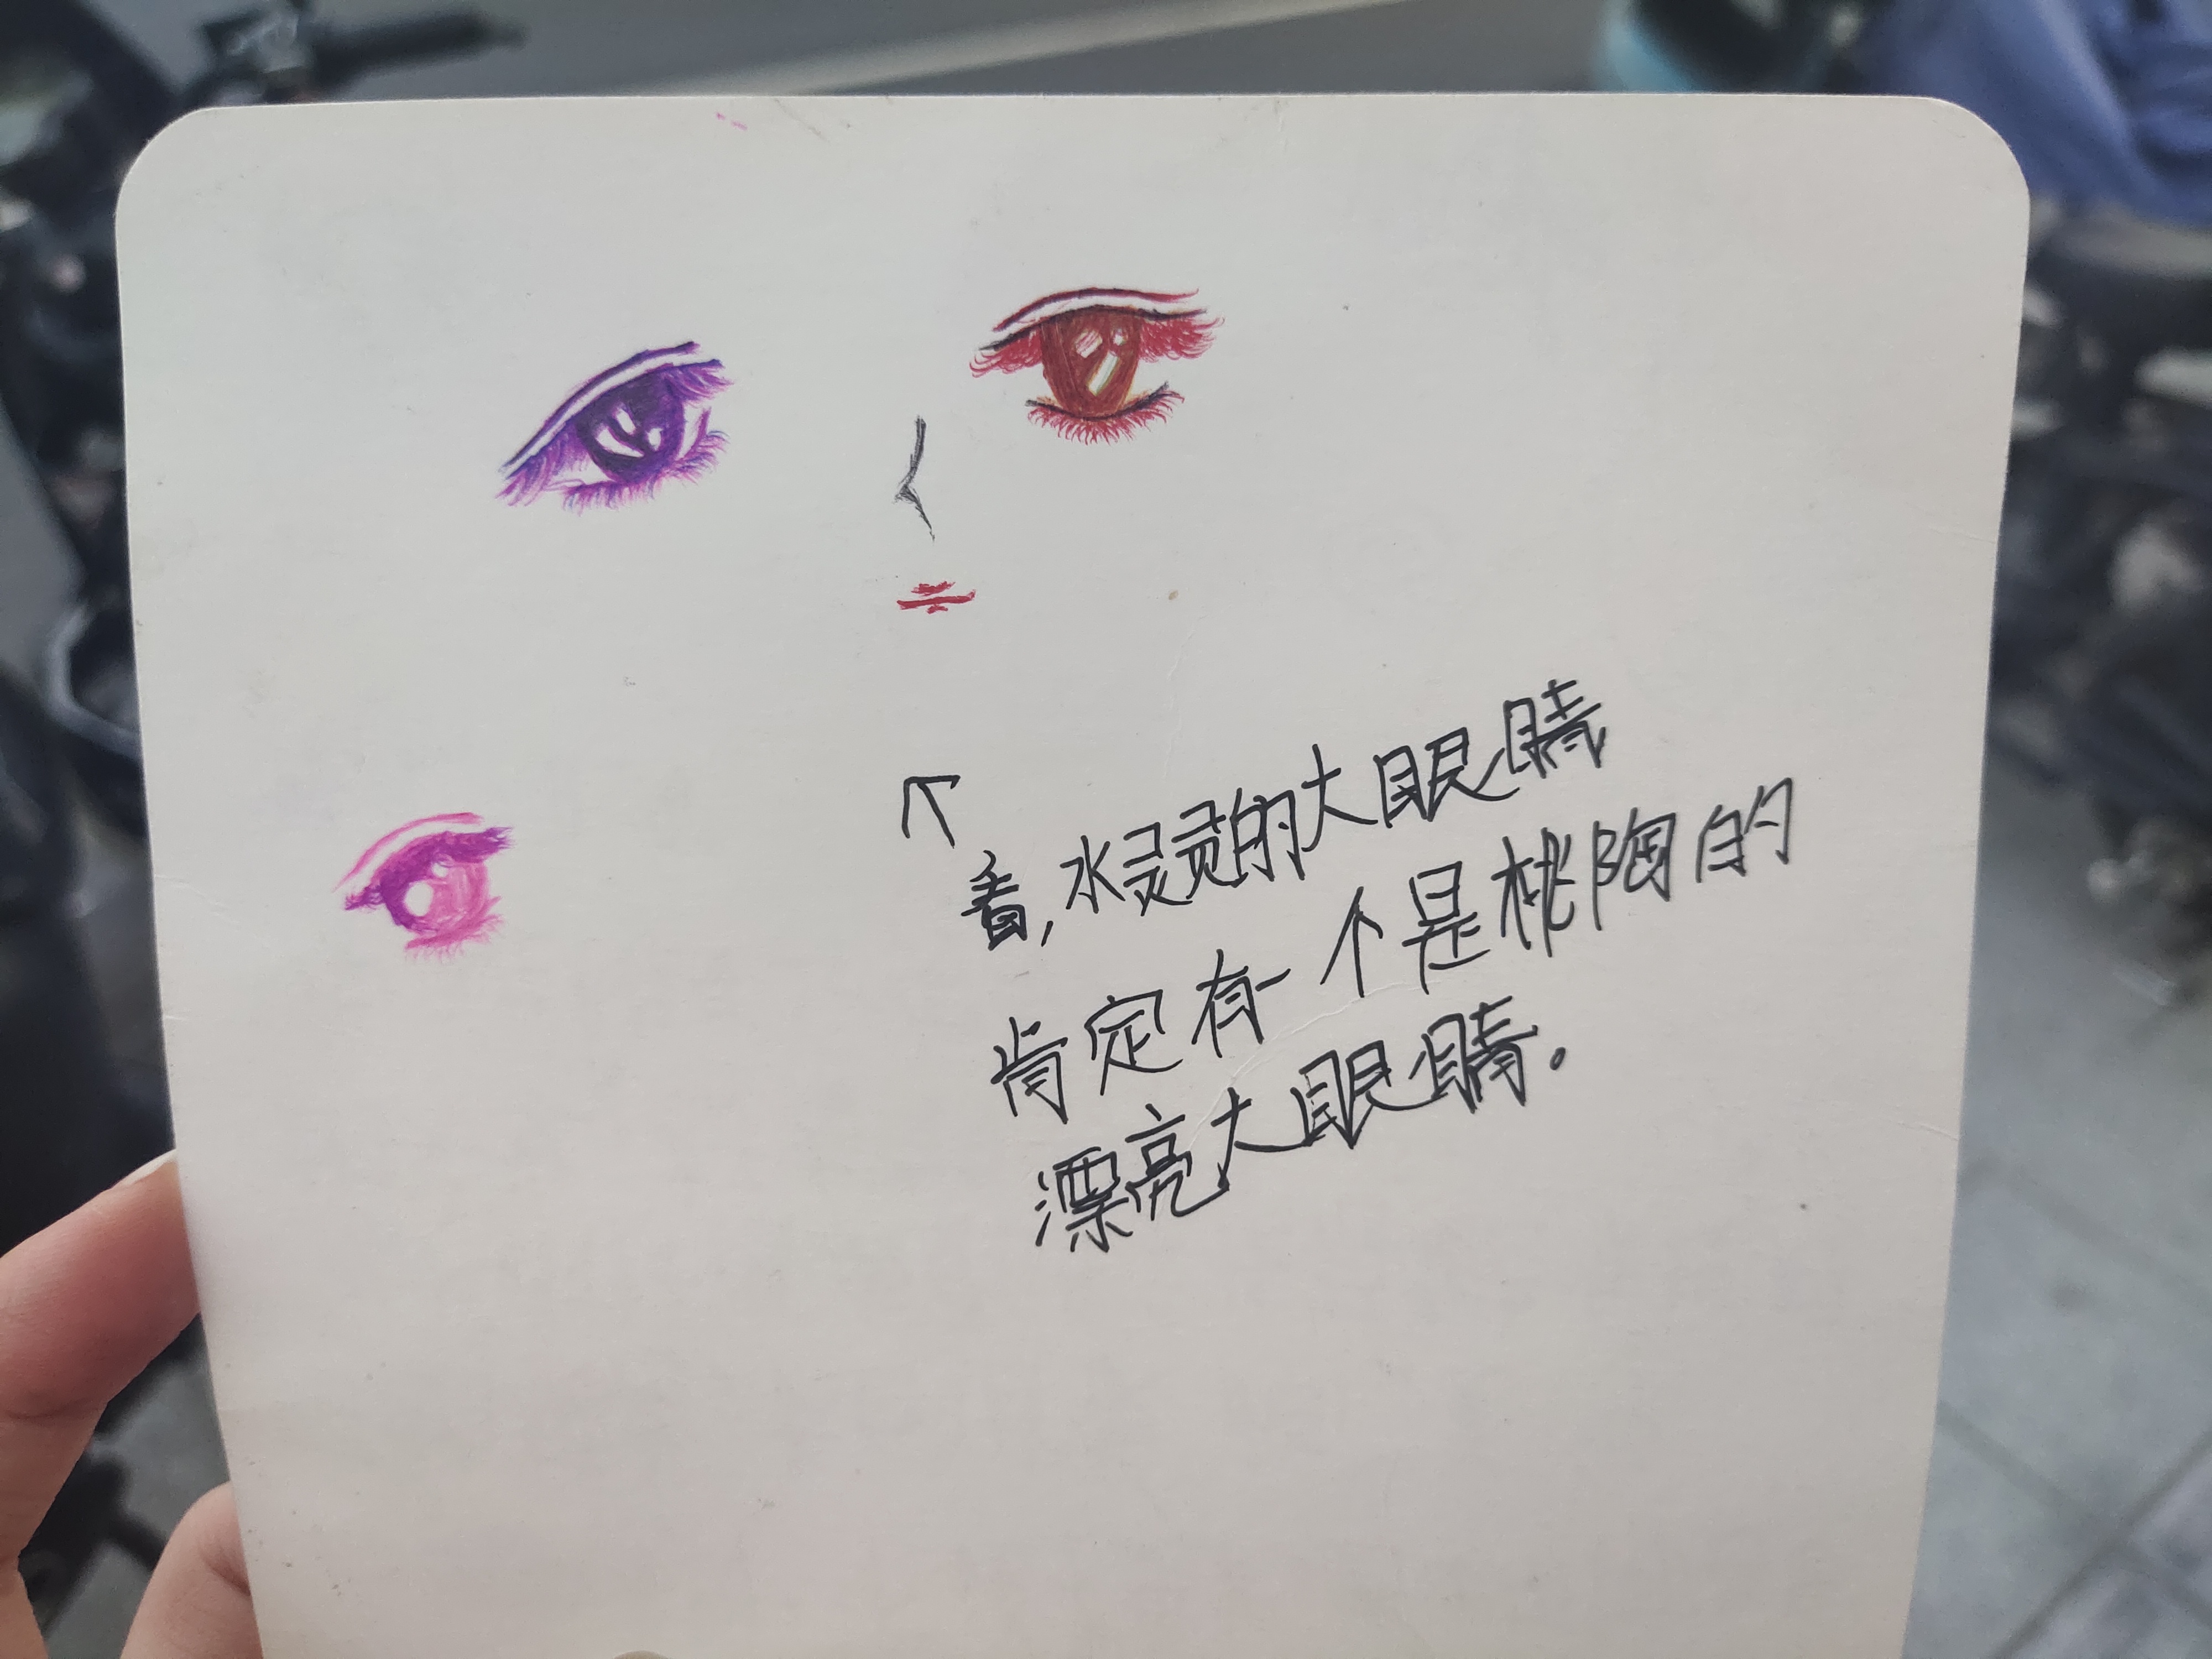 看,水灵灵的大眼睛
肯定有一个是桃陶的
漂亮大眼睛.